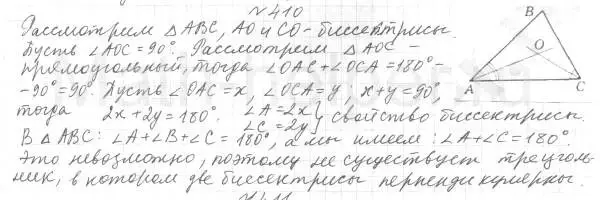 №410
Рассмотрим △ABC, AO и CO - биссектрисы.
Пусть ∠AOC = 90°. Рассмотрим △AOC -
прямоугольный, тогда ∠OAC + ∠OCA = 180° -
- 90° = 90°. Пусть ∠OAC = x, ∠OCA = y, x + y = 90°,
тогда 2x + 2y = 180°. ∠A = 2x } свойство биссектрисы.
∠C = 2y
В △ABC: ∠A + ∠B + ∠C = 180°, а мы имеем: ∠A + ∠C = 180°.
Это невозможно, поэтому не существует треуголь-
ник, в котором две биссектрисы перпендикулярны.
B
O
A
C